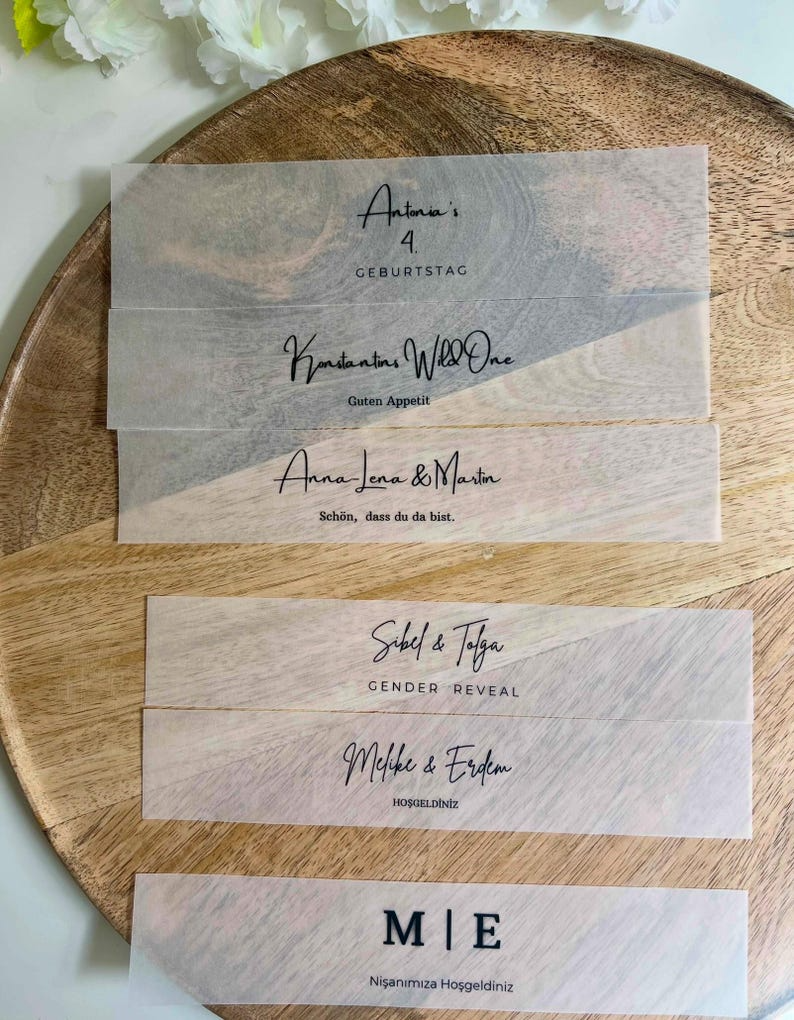 Antonia's
4.
GEBURTSTAG
Konstantins Wild One
Guten Appetit
Anna-Lena & Martin
Schön, dass du da bist.
Sibel & Tolga
GENDER REVEAL
Melike & Erdem
HOŞGELDİNİZ
M | E
Nişanımıza Hoşgeldiniz